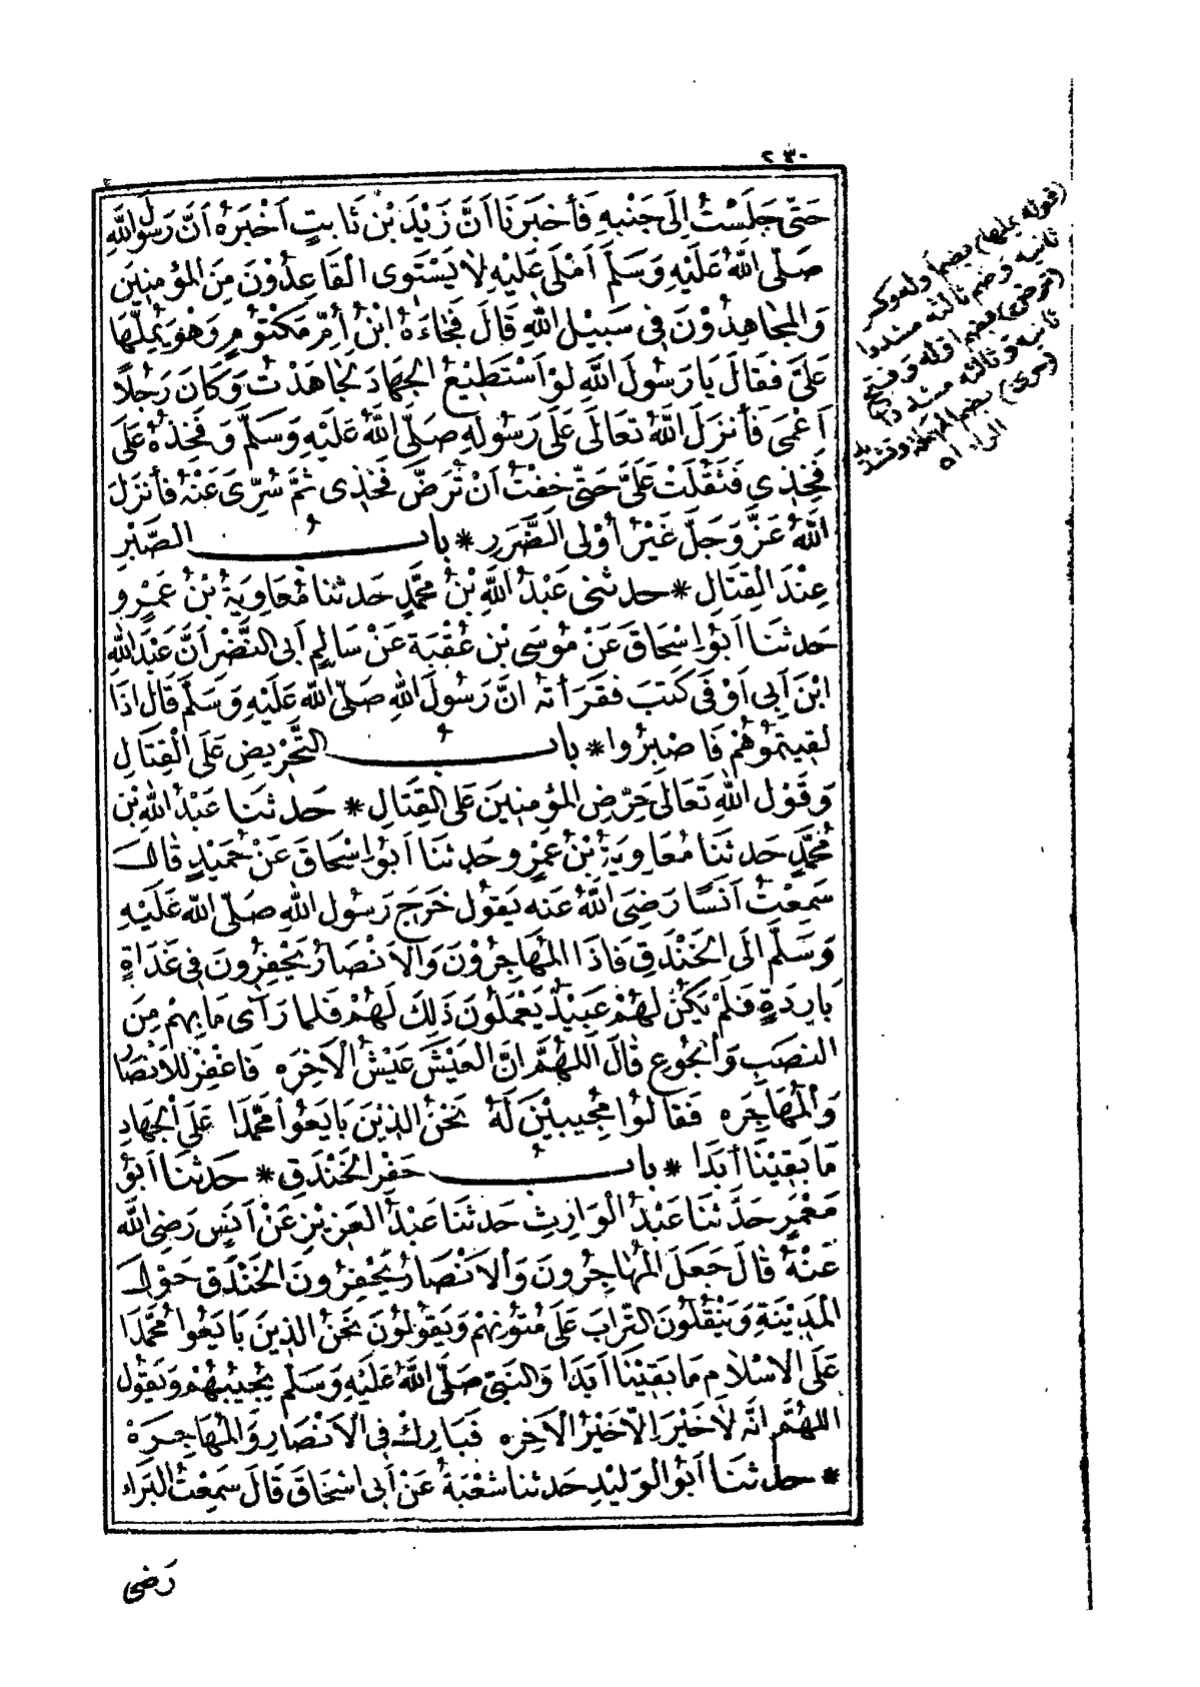 ٢٣٠
حَتَّى جَلَسْتُ إِلَى جَنْبِهِ فَأَخْبَرَنَا اَنَّ زَيْدَ بْنَ ثَابِتٍ اَخْبَرَهُ اَنَّ رَسُولَ اللّٰهِ
صَلَّى اللّٰهُ عَلَيْهِ وَسَلَّمَ اَمْلَى عَلَيْهِ لَا يَسْتَوِى الْقَاعِدُوْنَ مِنَ الْمُؤْمِنِيْنَ
وَالْمُجَاهِدُوْنَ فِى سَبِيْلِ اللّٰهِ قَالَ فَجَاءَهُ ابْنُ أُمِّ مَكْتُوُمٍ وَهْوَ يُمِلُّهَا
عَلَىَّ فَقَالَ يَا رَسُولَ اللّٰهِ لَوْ اَسْتَطِيْعُ الْجِهَادَ لَجَاهَدْتُ وَكَانَ رَجُلًا
اَعْمَى فَأَنْزَلَ اللّٰهُ تَعَالَى عَلَى رَسُولِهِ صَلَّى اللّٰهُ عَلَيْهِ وَسَلَّمَ وَفَخِذُهُ عَلَى
فَخِذِى فَثَقُلَتْ عَلَىَّ حَتَّى خِفْتُ اَنْ تُرَضَّ فَخِذِى ثُمَّ سُرِّىَ عَنْهُ فَأَنْزَلَ
اللّٰهُ عَزَّ وَجَلَّ غَيْرُ أُوْلِى الضَّرَرِ * بابُ الصَّبْرِ
عِنْدَ الْقِتَالِ * حدثنى عَبْدُ اللّٰهِ بْنُ مُحَمَّدٍ حَدثنا مُعَاوِيَةُ بْنُ عَمْرٍو
حَدثنَا اَبُو اِسْحَاقَ عَنْ مُوسَى بْنِ عُقْبَةَ عَنْ سَالِمٍ اَبِى النَّضْرِ اَنَّ عَبْدَ اللّٰهِ
ابْنَ اَبِى اَوْفَى كَتَبَ فَقَرَأْتُهُ اِنَّ رَسُولَ اللّٰهِ صَلَّى اللّٰهُ عَلَيْهِ وَسَلَّمَ قَالَ اِذَا
لَقِيتُمُوْهُمْ فَاصْبِرُوا * بابُ التَّحْرِيضِ عَلَى الْقِتَالِ
وَقَوْلِ اللّٰهِ تَعَالَى حَرِّضِ الْمُؤْمِنِيْنَ عَلَى الْقِتَالِ * حَدثنَا عَبْدُ اللّٰهِ بْنُ
مُحَمَّدٍ حَدثنَا مُعَاوِيَةُ بْنُ عَمْرٍو حَدثنَا اَبُو اِسْحَاقَ عَنْ حُمَيْدٍ قَالَ
سَمِعْتُ اَنَسًا رَضِىَ اللّٰهُ عَنْهُ يَقُولُ خَرَجَ رَسُولُ اللّٰهِ صَلَّى اللّٰهُ عَلَيْهِ
وَسَلَّمَ اِلَى الْخَنْدَقِ فَاِذَا الْمُهَاجِرُوْنَ وَالْاَنْصَارُ يَحْفِرُونَ فِى غَدَاةٍ
بَارِدَةٍ فَلَمْ يَكُنْ لَهُمْ عَبِيْدٌ يَعْمَلُونَ ذَلِكَ لَهُمْ فَلَما رَأَى مَا بِهِمْ مِنَ
النَّصَبِ وَالْجُوعِ قَالَ اَللّٰهُمَّ اِنَّ الْعَيْشَ عَيْشُ الْاَخِرَه فَاغْفِرْ لِلْاَنْصَارِ
وَالْمُهَاجِرَه فَقَالُوا مُجِيبِيْنَ لَهُ نَحْنُ الَّذِيْنَ بَايَعُوا مُحَمَّدَا عَلَى الْجِهَادِ
مَا بَقِيْنَا اَبَدَا * بابُ حَفْرِ الْخَنْدَقِ * حَدثنَا اَبُو
مَعْمَرٍ حَدَّثنَا عَبْدُ الْوَارِثِ حَدثنَا عَبْدُ الْعَزِيْزِ عَنْ اَنَسٍ رَضِىَ اللّٰهُ
عَنْهُ قَالَ جَعَلَ الْمُهَاجِرُونَ وَالْاَنْصَارُ يَحْفِرُونَ الْخَنْدَقَ حَوْلَ
الْمَدِيْنَةِ وَيَنْقُلُونَ التُّرَابَ عَلَى مُتُوْنِهِمْ وَيَقُولُوْنَ نَحْنُ الَّذِينَ بَايَعُوا مُحَمَّدَا
عَلَى الْاِسْلَامِ مَا بَقِيْنَا اَبَدَا وَالنَّبِىُّ صَلَّى اللّٰهُ عَلَيْهِ وَسَلَّمَ يُجِيبُهُمْ وَيَقُولُ
اللّٰهُمَّ اِنَّهُ لَا خَيْرَ اِلَّا خَيْرُ الْاَخِرَه فَبَارِكْ فِى الْاَنْصَارِ وَالْمُهَاجِرَهْ
* حدثنَا اَبُو الْوَلِيْدِ حَدثنا شُعْبَةُ عَنْ اَبِى اِسْحَاقَ قَالَ سَمِعْتُ الْبَرَاءَ
رَضِىَ
(قوله يملها) بضم أوله وكسر
ثانيه وضم ثالثه مشددا
(ترض) بضم أوله وفتح
ثانيه وثالثه مشددا
(سرى) بضم المهملة وتشديد
الراء اه